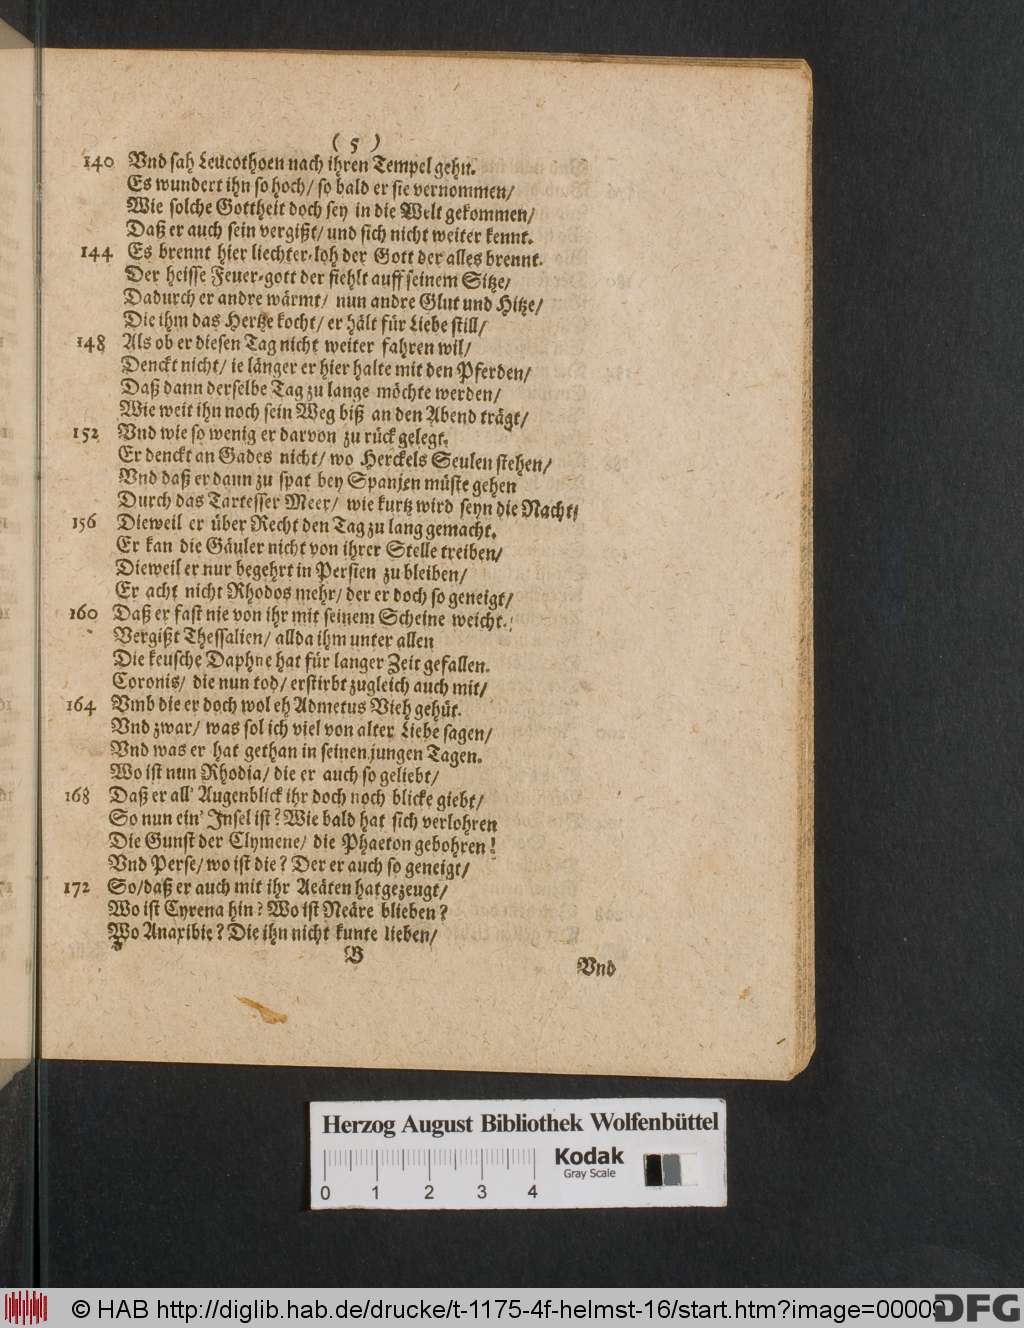 ( 5 )
140 Vnd sah Leucothoen nach ihren Tempel gehn.
Es wundert ihn so hoch/ so bald er sie vernommen/
Wie solche Gottheit doch sey in die Welt gekommen/
Daß er auch sein vergißt/ und sich nicht weiter kennt.
144 Es brennt hier liechter-loh der Gott der alles brennt.
Der heisse Feuer-gott der fiehlt auff seinem Sitze/
Dadurch er andre wärmt/ nun andre Glut und Hitze/
Die ihm das Hertze kocht/ er hält für Liebe still/
148 Als ob er diesen Tag nicht weiter fahren wil/
Denckt nicht/ ie länger er hier halte mit den Pferden/
Daß dann derselbe Tag zu lange möchte werden/
Wie weit ihn noch sein Weg biß an den Abend trägt/
152 Vnd wie so wenig er darvon zu rück gelegt.
Er denckt an Gades nicht/ wo Herckels Seulen stehen/
Vnd daß er dann zu spat bey Spanjen müste gehen
Durch das Tartesser Meer/ wie kurtz wird seyn die Nacht/
156 Dieweil er über Recht den Tag zu lang gemacht.
Er kan die Gäuler nicht von ihrer Stelle treiben/
Dieweil er nur begehrt in Persien zu bleiben/
Er acht nicht Rhodos mehr/ der er doch so geneigt/
160 Daß er fast nie von ihr mit seinem Scheine weicht.
Vergißt Thessalien/ allda ihm unter allen
Die keusche Daphne hat für langer Zeit gefallen.
Coronis/ die nun tod/ erstirbt zugleich auch mit/
164 Vmb die er doch wol eh Admetus Vieh gehüt.
Vnd zwar/ was sol ich viel von alter Liebe sagen/
Vnd was er hat gethan in seinen jungen Tagen.
Wo ist nun Rhodia/ die er auch so geliebt/
168 Daß er all' Augenblick ihr doch noch blicke giebt/
So nun ein' Insel ist? Wie bald hat sich verlohren
Die Gunst der Clymene/ die Phaeton gebohren!
Vnd Perse/ wo ist die? Der er auch so geneigt/
172 So/ daß er auch mit ihr Aeäten hat gezeugt/
Wo ist Cyrena hin? Wo ist Neäre blieben?
Wo Anaxibie? Die ihn nicht kunte lieben/
B
Vnd
Herzog August Bibliothek Wolfenbüttel
Kodak
Gray Scale
0 1 2 3 4
© HAB http://diglib.hab.de/drucke/t-1175-4f-helmst-16/start.htm?image=00009
DFG